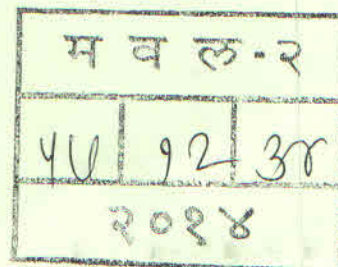 म व ल - २
१२ ३४
२०१४